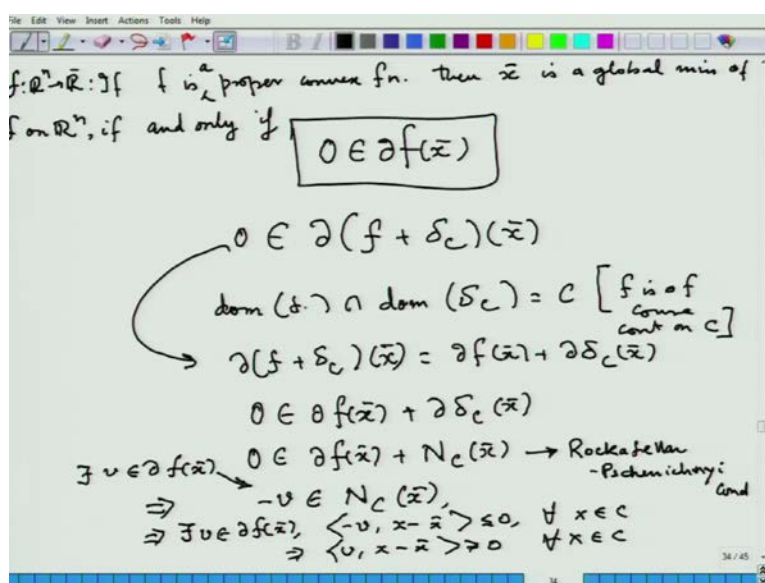 File Edit View Insert Actions Tools Help
f: ℝⁿ→ℝ̄ : If f is a proper convex fn. then x̄ is a global min of
f on ℝⁿ, if and only if
0 ∈ ∂f(x̄)
0 ∈ ∂(f + δ_C)(x̄)
dom (f.) ∩ dom (δ_C) = C [f is of course cont on C]
∂(f + δ_C)(x̄) = ∂f(x̄) + ∂δ_C(x̄)
0 ∈ ∂f(x̄) + ∂δ_C(x̄)
0 ∈ ∂f(x̄) + N_C(x̄) → Rockafellar
- Pschenichnyi Cond
∃ v ∈ ∂f(x̄)
⇒ -v ∈ N_C(x̄),
⇒ ∃ v ∈ ∂f(x̄), <-v, x-x̄> ≤ 0, ∀ x ∈ C
⇒ <v, x-x̄> ≥ 0 ∀ x ∈ C
34 / 45
34